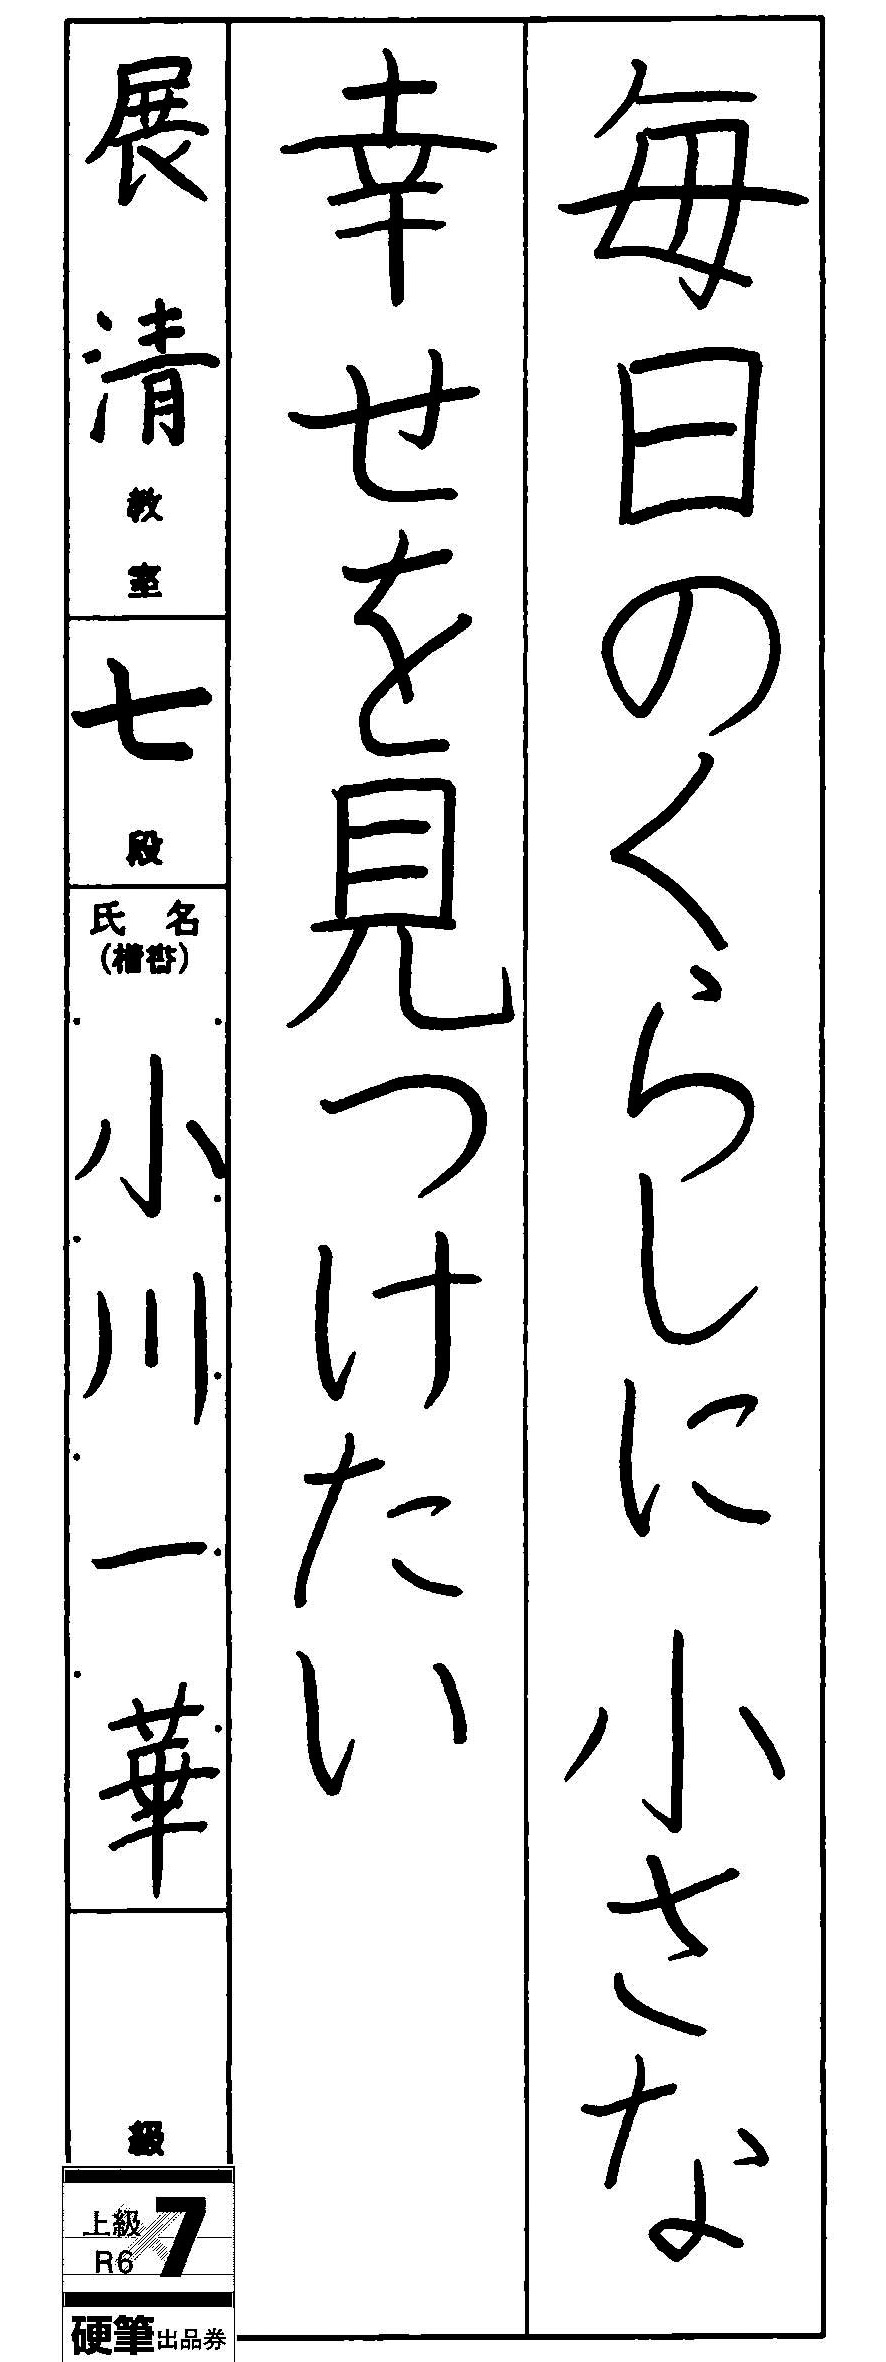 毎日のくらしに小さな
幸せを見つけたい
展清教室
七段
氏名
(楷書)
小川一華
級
上級
R6
7
硬筆出品券